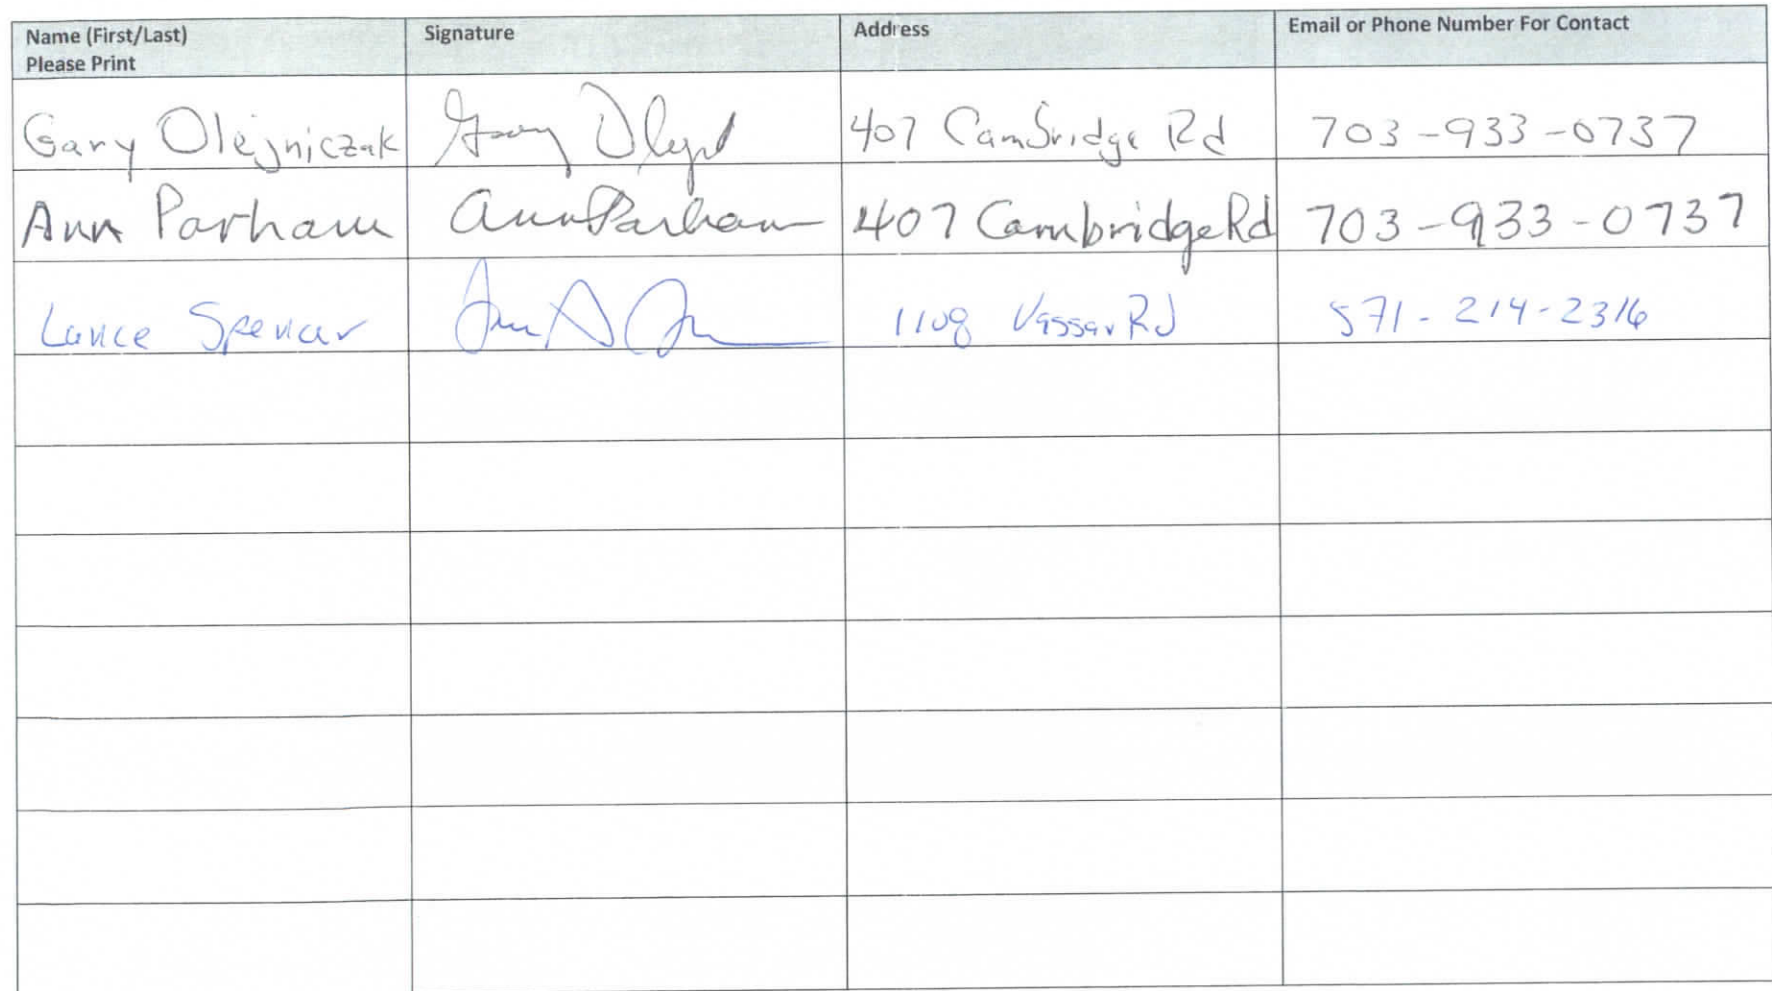 Name (First/Last) Signature Address Email or Phone Number For Contact
Please Print
Gary Olejniczak 407 Cambridge Rd 703-933-0737
Ann Parham Ann Parham 407 Cambridge Rd 703-933-0737
Lance Spencer 1108 Vassar Rd 571-214-2316